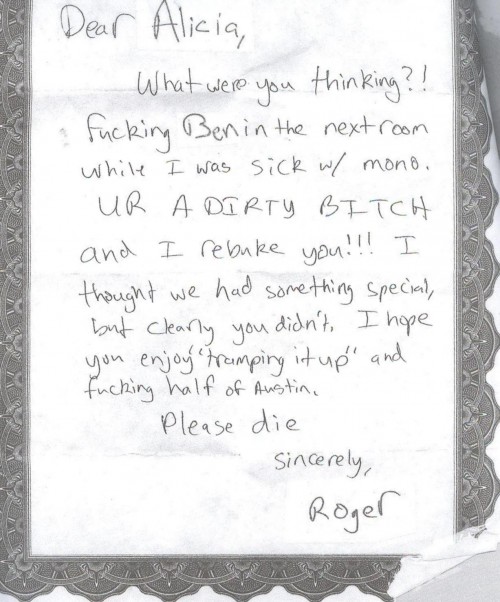 Dear Alicia,
What were you thinking?!
Fucking Ben in the next room
while I was sick w/ mono.
UR A DIRTY BITCH
and I rebuke you!!! I
thought we had something special,
but clearly you didn't. I hope
you enjoy "tramping it up" and
fucking half of Austin.
Please die
Sincerely,
Roger